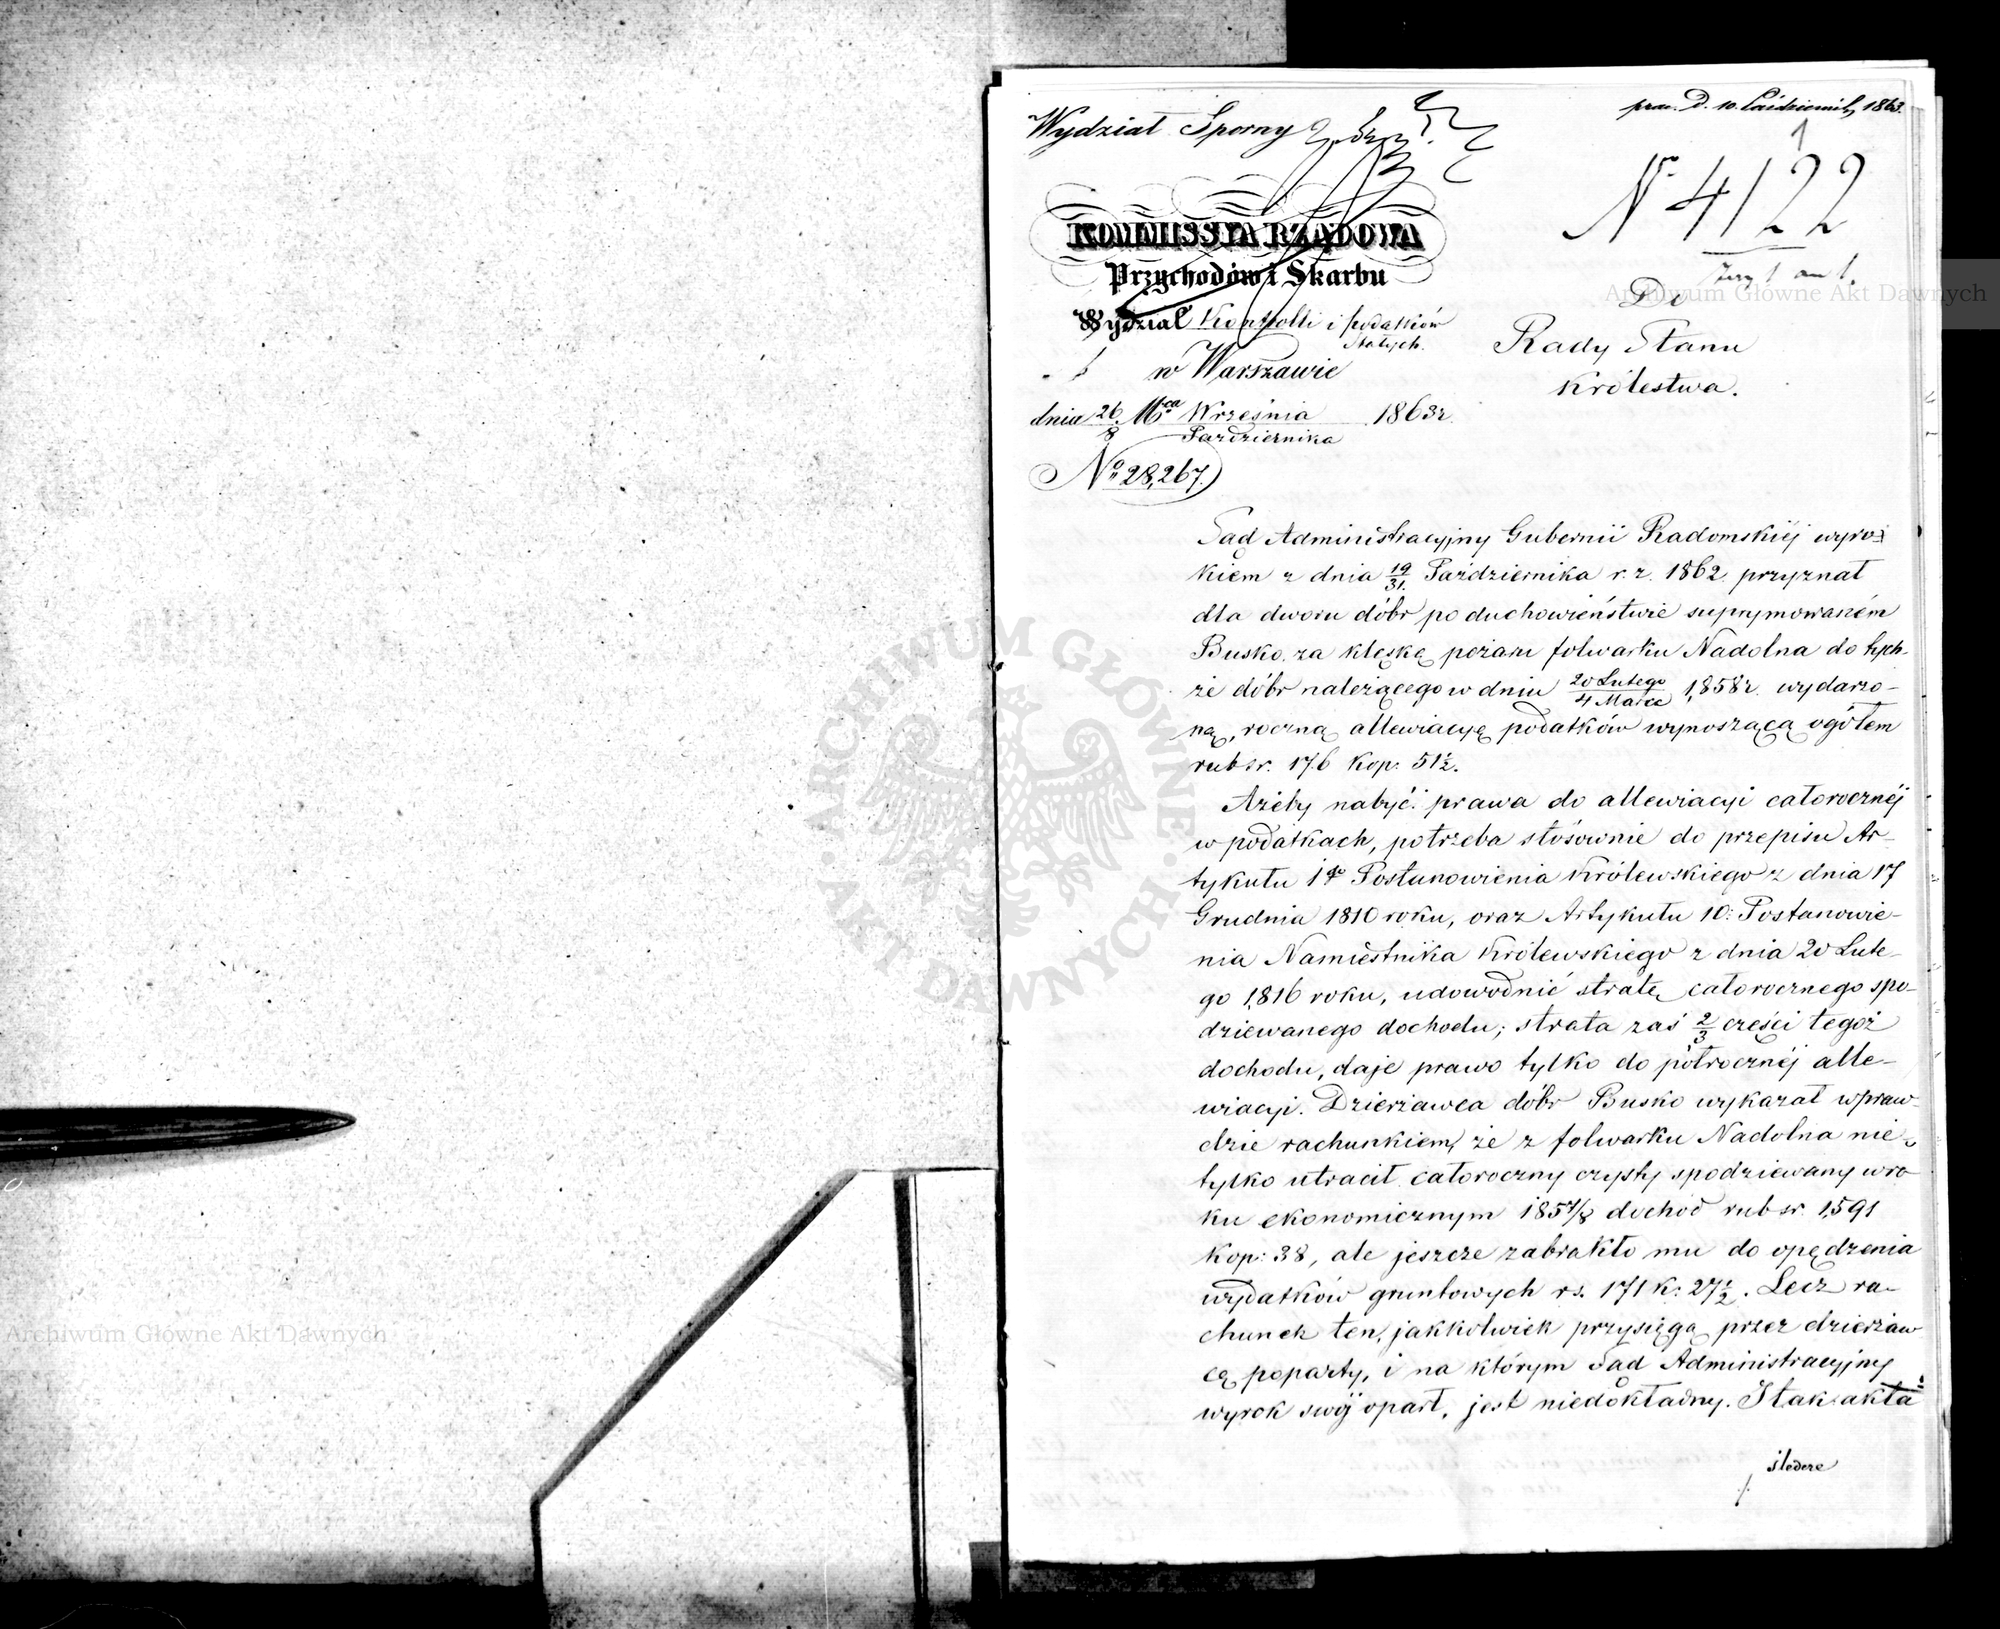 praes. D. 10. Października 1863.
Wydział Sporny
Nr 4122
KOMMISSYA RZĄDOWA
Przychodów i Skarbu
Wydział Kontrolli i podatków
stałych.
w Warszawie
dnia 26/8 Mca Września/Października 1863 r.
No 28,267.
Do
Rady Stanu
Królestwa.
Sąd Administracyjny Gubernii Radomskiéj wyro-
kiem z dnia 19/31. Października r. z. 1862 przyznał
dla dworu dóbr po duchowieństwie suprymowaném
Busko, za klęskę pożaru folwarku Nadolna do tych-
że dóbr należącego w dniu 20 Lutego/4 Marca 1858 r. wydarzo-
ną, roczną allewiacyę podatków wynoszącą ogółem
rubsr. 176 kop. 51½.
Ażeby nabyć prawa do allewiacyi całorocznéj
w podatkach, potrzeba stósownie do przepisu Ar-
tykułu 1go Postanowienia Królewskiego z dnia 17
Grudnia 1810 roku, oraz Artykułu 10: Postanowie-
nia Namiestnika Królewskiego z dnia 20 Lute-
go 1816 roku, udowodnić stratę całorocznego spo-
dziewanego dochodu; strata zaś 2/3 części tegoż
dochodu, daje prawo tylko do półrocznéj alle-
wiacyi. Dzierżawca dóbr Busko wykazał wpraw-
dzie rachunkiem, że z folwarku Nadolna nie-
tylko utracił całoroczny czysty spodziewany w ro-
ku ekonomicznym 1857/8 dochód rubsr. 1,591
kop: 38, ale jeszcze zabrakło mu do opędzenia
wydatków gruntowych rs. 171 k: 27½. Lecz ra-
chunek ten, jakkolwiek przysięgą przez dzierżaw-
cę poparty, i na którym Sąd Administracyjny
wyrok swój oparł, jest niedokładny. I tak: akta
śledcze
Archiwum Główne Akt Dawnych
ARCHIWUM GŁÓWNE
AKT DAWNYCH
Archiwum Główne Akt Dawnych